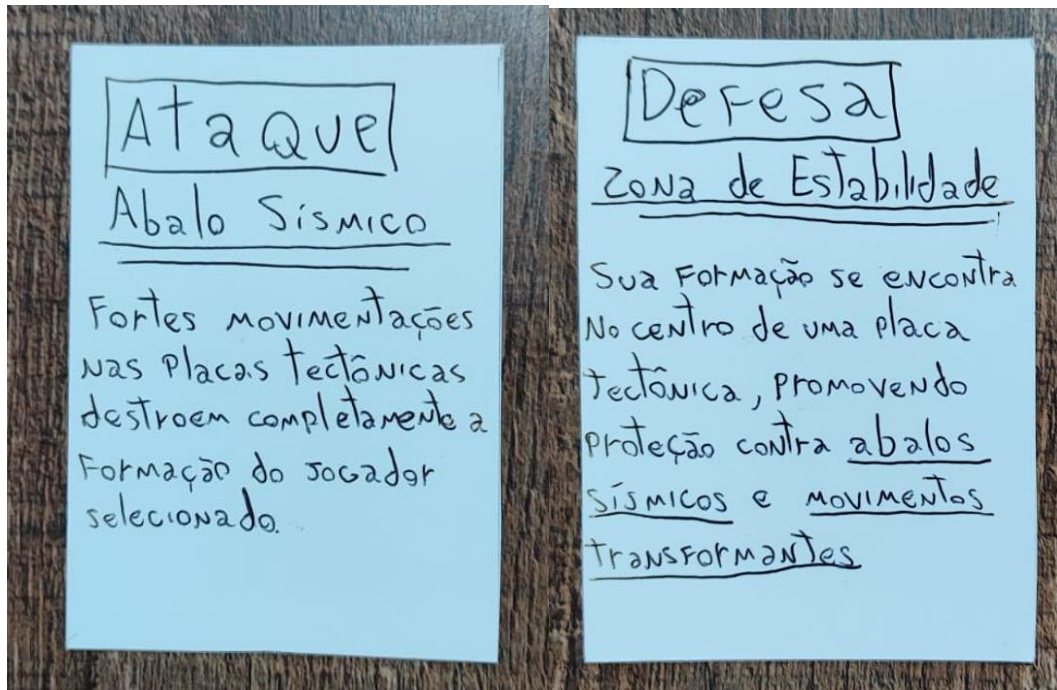 Ataque
Abalo Sísmico
Fortes movimentações
nas placas tectônicas
destroem completamente a
formação do jogador
selecionado.
Defesa
Zona de Estabilidade
Sua formação se encontra
no centro de uma placa
tectônica, promovendo
proteção contra abalos
sísmicos e movimentos
transformantes